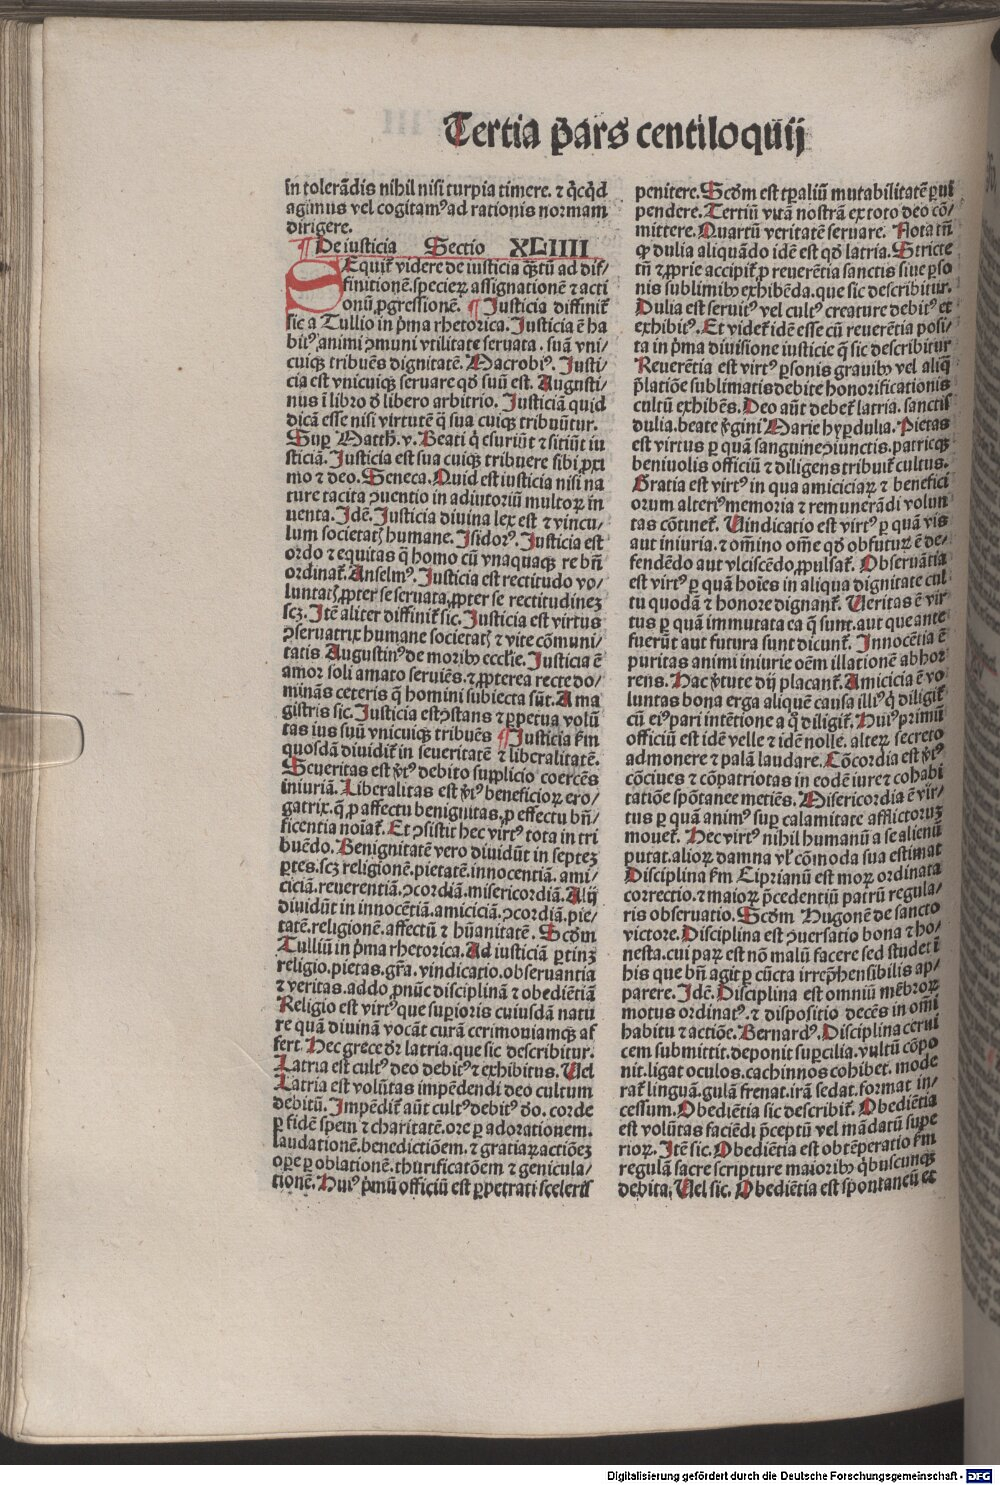 Tertia ꝑars centiloquij
in tolerādis nihil nisi turpia timere. ⁊ q̇cq̇d
agimus vel cogitamꝰ ad rationis normam
dirigere.
¶ De iusticia Sectio XLIIII
SEquit᷑ videre de iusticia qꝫtū ad dif/
finitionē.specieꝝ assignationē ⁊ acti
onū ꝓgressionē. ¶ Justicia diffinit᷑
sic a Tullio in pͥma rhetorica. Justicia ē ha
bitꝰ animi ꝯmuni vtilitate seruata. suā vni/
cuiqꝫ tribuēs dignitatē. Macrobiꝰ. Justi/
cia est vnicuiqꝫ seruare qd̓ suū est. Augusti/
nus ī libro d̓ libero arbitrio. Justiciā quid
dicā esse nisi virtutē q̄ sua cuiqꝫ tribuūtur.
Suꝑ Matth̓. v. Beati q̇ esuriūt ⁊ sitiūt iu
sticiā. Justicia est sua cuiqꝫ tribuere sibi ꝓxi
mo ⁊ deo. Seneca. Quid est iusticia nisi na
ture tacita ꝯuentio in adiutoriū multoꝝ in
uenta. Idē. Justicia diuina lex est ⁊ vincu/
lum societatꝭ humane. Isidorꝰ. Justicia est
ordo ⁊ equitas q̄ homo cū vnaquaqꝫ re bn̄
ordinat᷑. Anselmꝰ. Justicia est rectitudo vo/
luntatꝭ ꝓpter se seruata, ꝓpter se rectitudineꝫ
scꝫ. Itē aliter diffinit᷑ sic. Justicia est virtus
ꝯseruatrix humane societatꝭ ⁊ vite cōmuni/
tatis Augustinꝰ de moribꝰ eccl̓ie. Justicia ē
amor soli amato seruiēs. ⁊ ꝓpterea recte do/
minās ceteris q̄ homini subiecta sūt. A ma
gistris sic. Justicia est ꝯstans ⁊ ꝑpetua volū
tas ius suū vnicuiqꝫ tribuēs ¶ Justicia fm
quosdā diuidit᷑ in seueritatē ⁊ liberalitatē.
Seueritas est v̓tꝰ debito supplicio coercēs
iniuriā. Liberalitas est v̓tꝰ beneficioꝝ ero/
gatrix. q̄ ꝓ affectu benignitas, ꝓ effectu bn̄/
ficentia noiat᷑. Et ꝯsistit hec virtꝰ tota in tri
buēdo. Benignitatē vero diuidūt in septeꝫ
ꝑtes. scꝫ religionē. pietatē. innocentiā. ami/
ciciā. reuerentiā. ꝯcordiā. misericordiā. Alij
diuidūt in innocētiā. amiciciā. ꝯcordiā. pie/
tatē. religionē. affectū ⁊ hūanitatē. Scd̓m
Tulliū in pͥma rhetorica. Ad iusticiā ꝑtinꝫ
religio. pietas. gr̄a. vindicatio. obseruantia
⁊ veritas. addo ꝓnūc disciplinā ⁊ obediētiā
Religio est virtꝰ que superioris cuiusdā natu
re quā diuinā vocāt curā cerimoniamqꝫ af
fert. Hec grece dr̄ latria. que sic describitur.
Latria est cultꝰ deo debitꝰ ⁊ exhibitus. Uel
Latria est volūtas impēdendi deo cultum
debitū. Impēdit᷑ aūt cultꝰ debitꝰ d̓o. corde
ꝑ fidē spem ⁊ charitatē. ore ꝑ adorationem.
laudationē. benedictiōem. ⁊ gratiaꝝ actiōeꝫ
oꝑe ꝑ oblationē. thurificatōem ⁊ genicula/
tionē. Huiꝰ pͥmū officiū est ꝑpetrati sceleris
penitere. Scd̓m est tꝑaliū mutabilitatē ꝑui
pendere. Tertiū vitā nostrā ex toto deo cō/
mittere. Quartū veritatē seruare. Nota tn̄
ꝙ dulia aliquādo idē est qd̓ latria. Stricte
tn̄ ⁊ ꝓprie accipit᷑ ꝓ reuerētia sanctis siue ꝑso
nis sublimibꝰ exhibēda. que sic describitur.
Dulia est seruitꝰ vel cultꝰ creature debitꝰ et
exhibitꝰ. Et videt᷑ idē esse cū reuerētia posi/
ta in pͥma diuisione iusticie q̄ sic describitur
Reuerētia est virtꝰ ꝑsonis grauibꝰ vel aliq̄
p̄latiōe sublimatis debite honorificationis
cultū exhibēs. Deo aūt debet᷑ latria. sanctis
dulia. beate v̓gini Marie hyꝑdulia. Pietas
est virtus ꝑ quā sanguine ꝯiunctis. patrieqꝫ
beniuolis officiū ⁊ diligens tribuit᷑ cultus.
Gratia est virtꝰ in qua amiciciaꝝ ⁊ benefici
orum alteriꝰ memoria ⁊ remunerādi volun
tas cōtinet᷑. Uindicatio est virtꝰ ꝑ quā vis
aut iniuria. ⁊ om̄ino om̄e qd̓ obfuturū ē de/
fendēdo aut vlciscēdo ꝓpulsat᷑. Obseruātia
est virtꝰ ꝑ quā hoīes in aliqua dignitate cul
tu quodā ⁊ honore dignant᷑. Ueritas ē vir
tus ꝑ quā immutata ea q̄ sunt. aut que ante
fuerūt aut futura sunt dicunt᷑. Innocētia ē
puritas animi iniurie oēm illationē abhor
rens. Hac v̓tute dij placant᷑. Amicicia ē vo
luntas bona erga aliquē causa illiꝰ q̇ diligit᷑
cū eiꝰ pari intētione a q̇ diligit᷑. Huiꝰ primū
officiū est idē velle ⁊ idē nolle. alteꝝ secreto
admonere ⁊ palā laudare. Cōcordia est v̓tꝰ
cōciues ⁊ cōpatriotas in eodē iure ⁊ cohabi
tatiōe spōtanee metiēs. Misericordia ē vir/
tus ꝑ quā animꝰ suꝑ calamitate afflictoruꝫ
mouet᷑. Hec virtꝰ nihil humanū a se alienū
putat. alioꝝ damna vl̓ cōmoda sua estimat
Disciplina fm Ciprianū est moꝝ ordinata
correctio. ⁊ maioꝝ p̄cedentiū patrū regula/
ris obseruatio. Scd̓m Hugonē de sancto
victore. Disciplina est ꝯuersatio bona ⁊ ho/
nesta. cui paꝝ est nō malū facere sed studet ī
his que bn̄ agit ꝑ cūcta irrep̄hensibilis ap/
parere. Idē. Disciplina est omniū mēbroꝝ
motus ordinatꝰ. ⁊ dispositio decēs in om̄i
habitu ⁊ actiōe. Bernardꝰ. Disciplina cerui
cem submittit. deponit suꝑcilia. vultū cōpo
nit. ligat oculos. cachinnos cohibet. mode
rat᷑ linguā. gulā frenat. irā sedat. format in/
cessum. Obediētia sic describit᷑. Obediētia
est volūtas faciēdi p̄ceptū vel mādatū supe
rioꝝ. Itē sic. Obediētia est obtēperatio fm
regulā sacre scripture maioribꝰ q̇buscunqꝫ
debita. Uel sic. Obediētia est spontaneū et
Digitalisierung gefördert durch die Deutsche Forschungsgemeinschaft - DFG